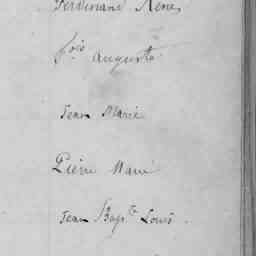 Ferdinand René
fois Auguste
Jean Marie
Pierre Marie
Jean Bapte Louis